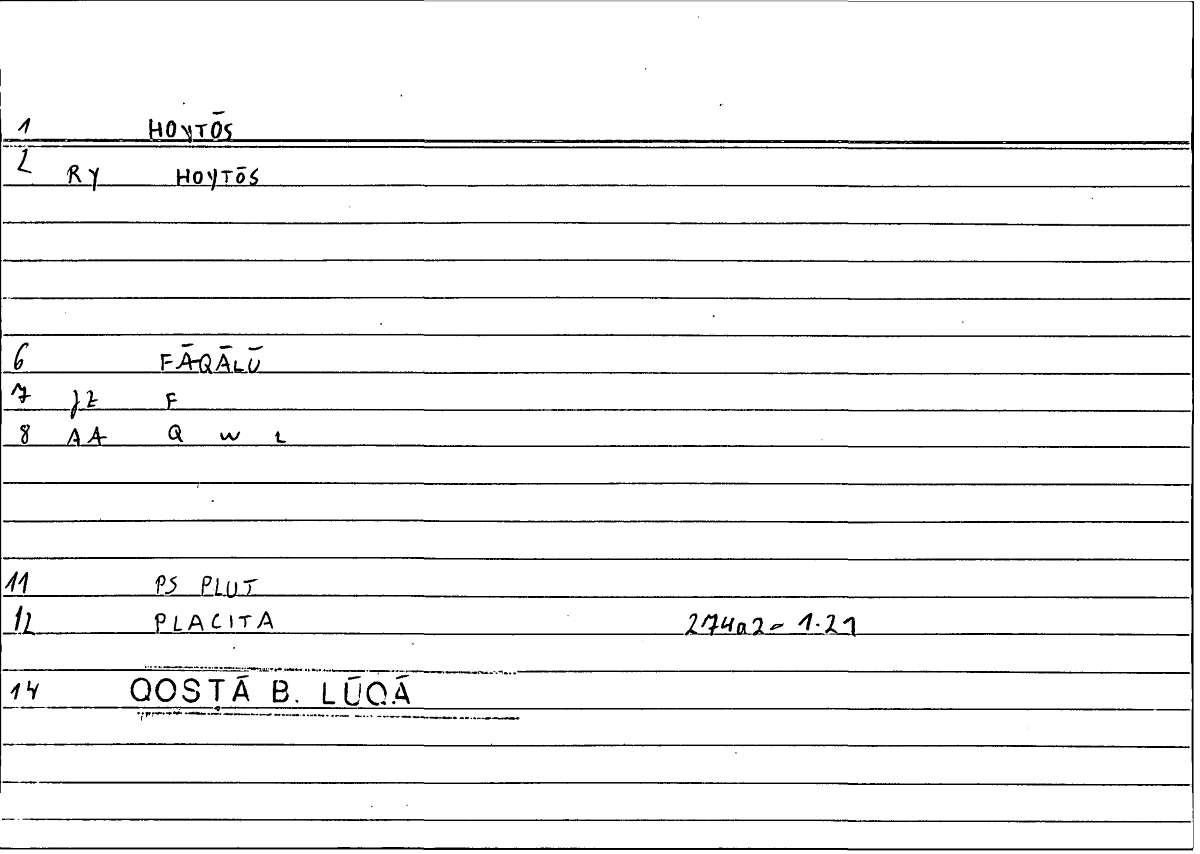 1 HOYTŌS
2 RY HOYTŌS
6 FĀQĀLŪ
7 JZ F
8 AA Q W L
11 PS PLUT
12 PLACITA 274a2 = 1.21
14 QOSṬĀ B. LŪQĀ